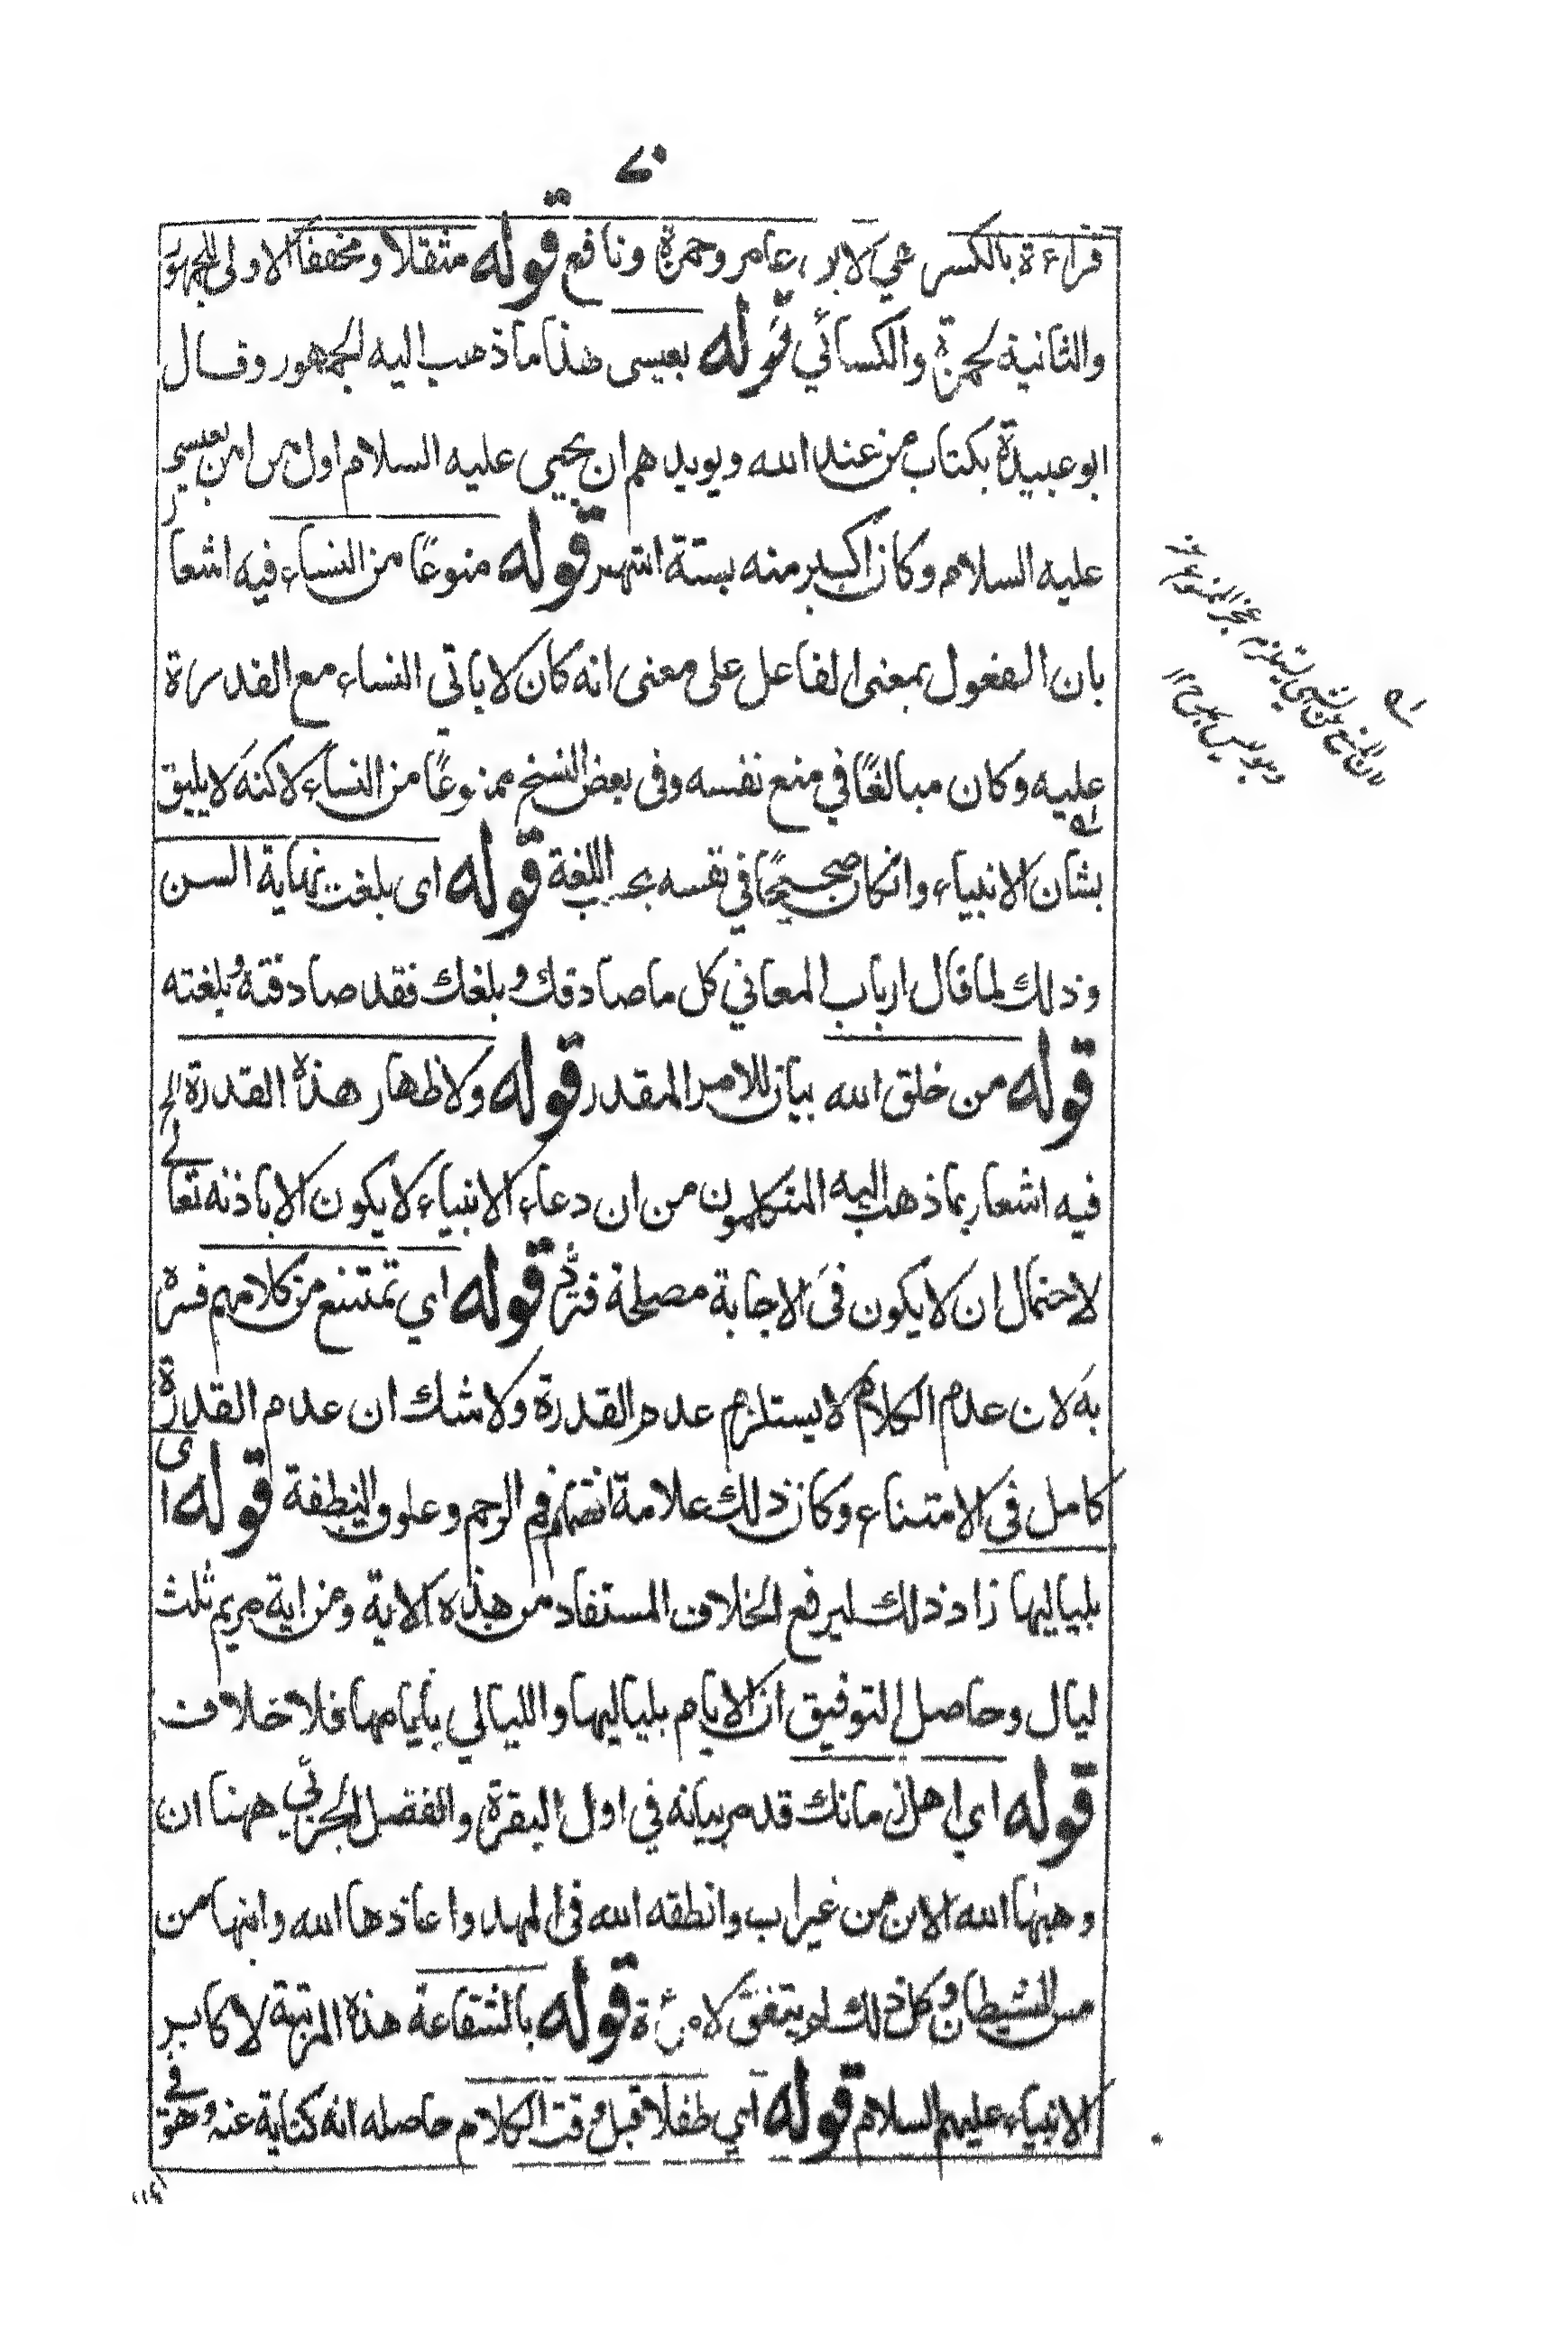 ٧٠
قراءة بالكسر هي لابن عامر وحمزة ونافع قوله مثقلا ومخففا الاولى للجمهور
والثانية لحمزة والكسائي قوله بعيسى هذا ما ذهب اليه الجمهور وقال
ابو عبيدة بكتاب من عند الله ويويدهم ان يحيى عليه السلام اول من امن بعيسى
عليه السلام وكان اكبر منه بستة اشهر قوله منوعًا من النساء فيه اشعار
بان الفعول بمعنى الفاعل على معنى انه كان لا ياتي النساء مع القدرة
عليه وكان مبالغًا في منع نفسه وفى بعض النسخ ممنوعًا من النساء لاكنه لا يليق
بشان الانبياء وانكان صحيحًا في نفسه بحسب اللغة قوله اى بلغت نهاية السن
وذلك لما قال ارباب المعاني كل ما صادفك وبلغك فقد صادفته وبلغته
قوله من خلق الله بيان للامر المقدر قوله ولاظهار هذه القدرة الخ
فيه اشعار بما ذهب اليه المتكلمون من ان دعاء الانبياء لا يكون الا باذنه تعالى
لاحتمال ان لا يكون في الاجابة مصلحة فترد قوله اي تمتنع من كلامهم فسره
به لان عدم الكلام لا يستلزم عدم القدرة ولا شك ان عدم القدرة
كامل في الامتناع وكان ذلك علامة انضمام فم الرحم وعلوق النطفة قوله اى
بلياليها زاد ذلك ليرفع الخلاف المستفاد من هذه الاية ومن اية مريم ثلث
ليال وحاصل التوفيق ان الايام بلياليها والليالي بايامها فلا خلاف
قوله اي اهل زمانك قد مر بيانه في اول البقرة والفضل الجزئي ههنا ان
وهبها الله الابن من غير اب وانطقه الله في المهد واعاذها الله وابنها من
مس الشيطان وكل ذلك لم يتفق لامرءة قوله بالشفاعة هذه المرتبة لاكابر
الانبياء عليهم السلام قوله اي طفلا قبل وقت الكلام حاصله انه كناية عنه وهو في